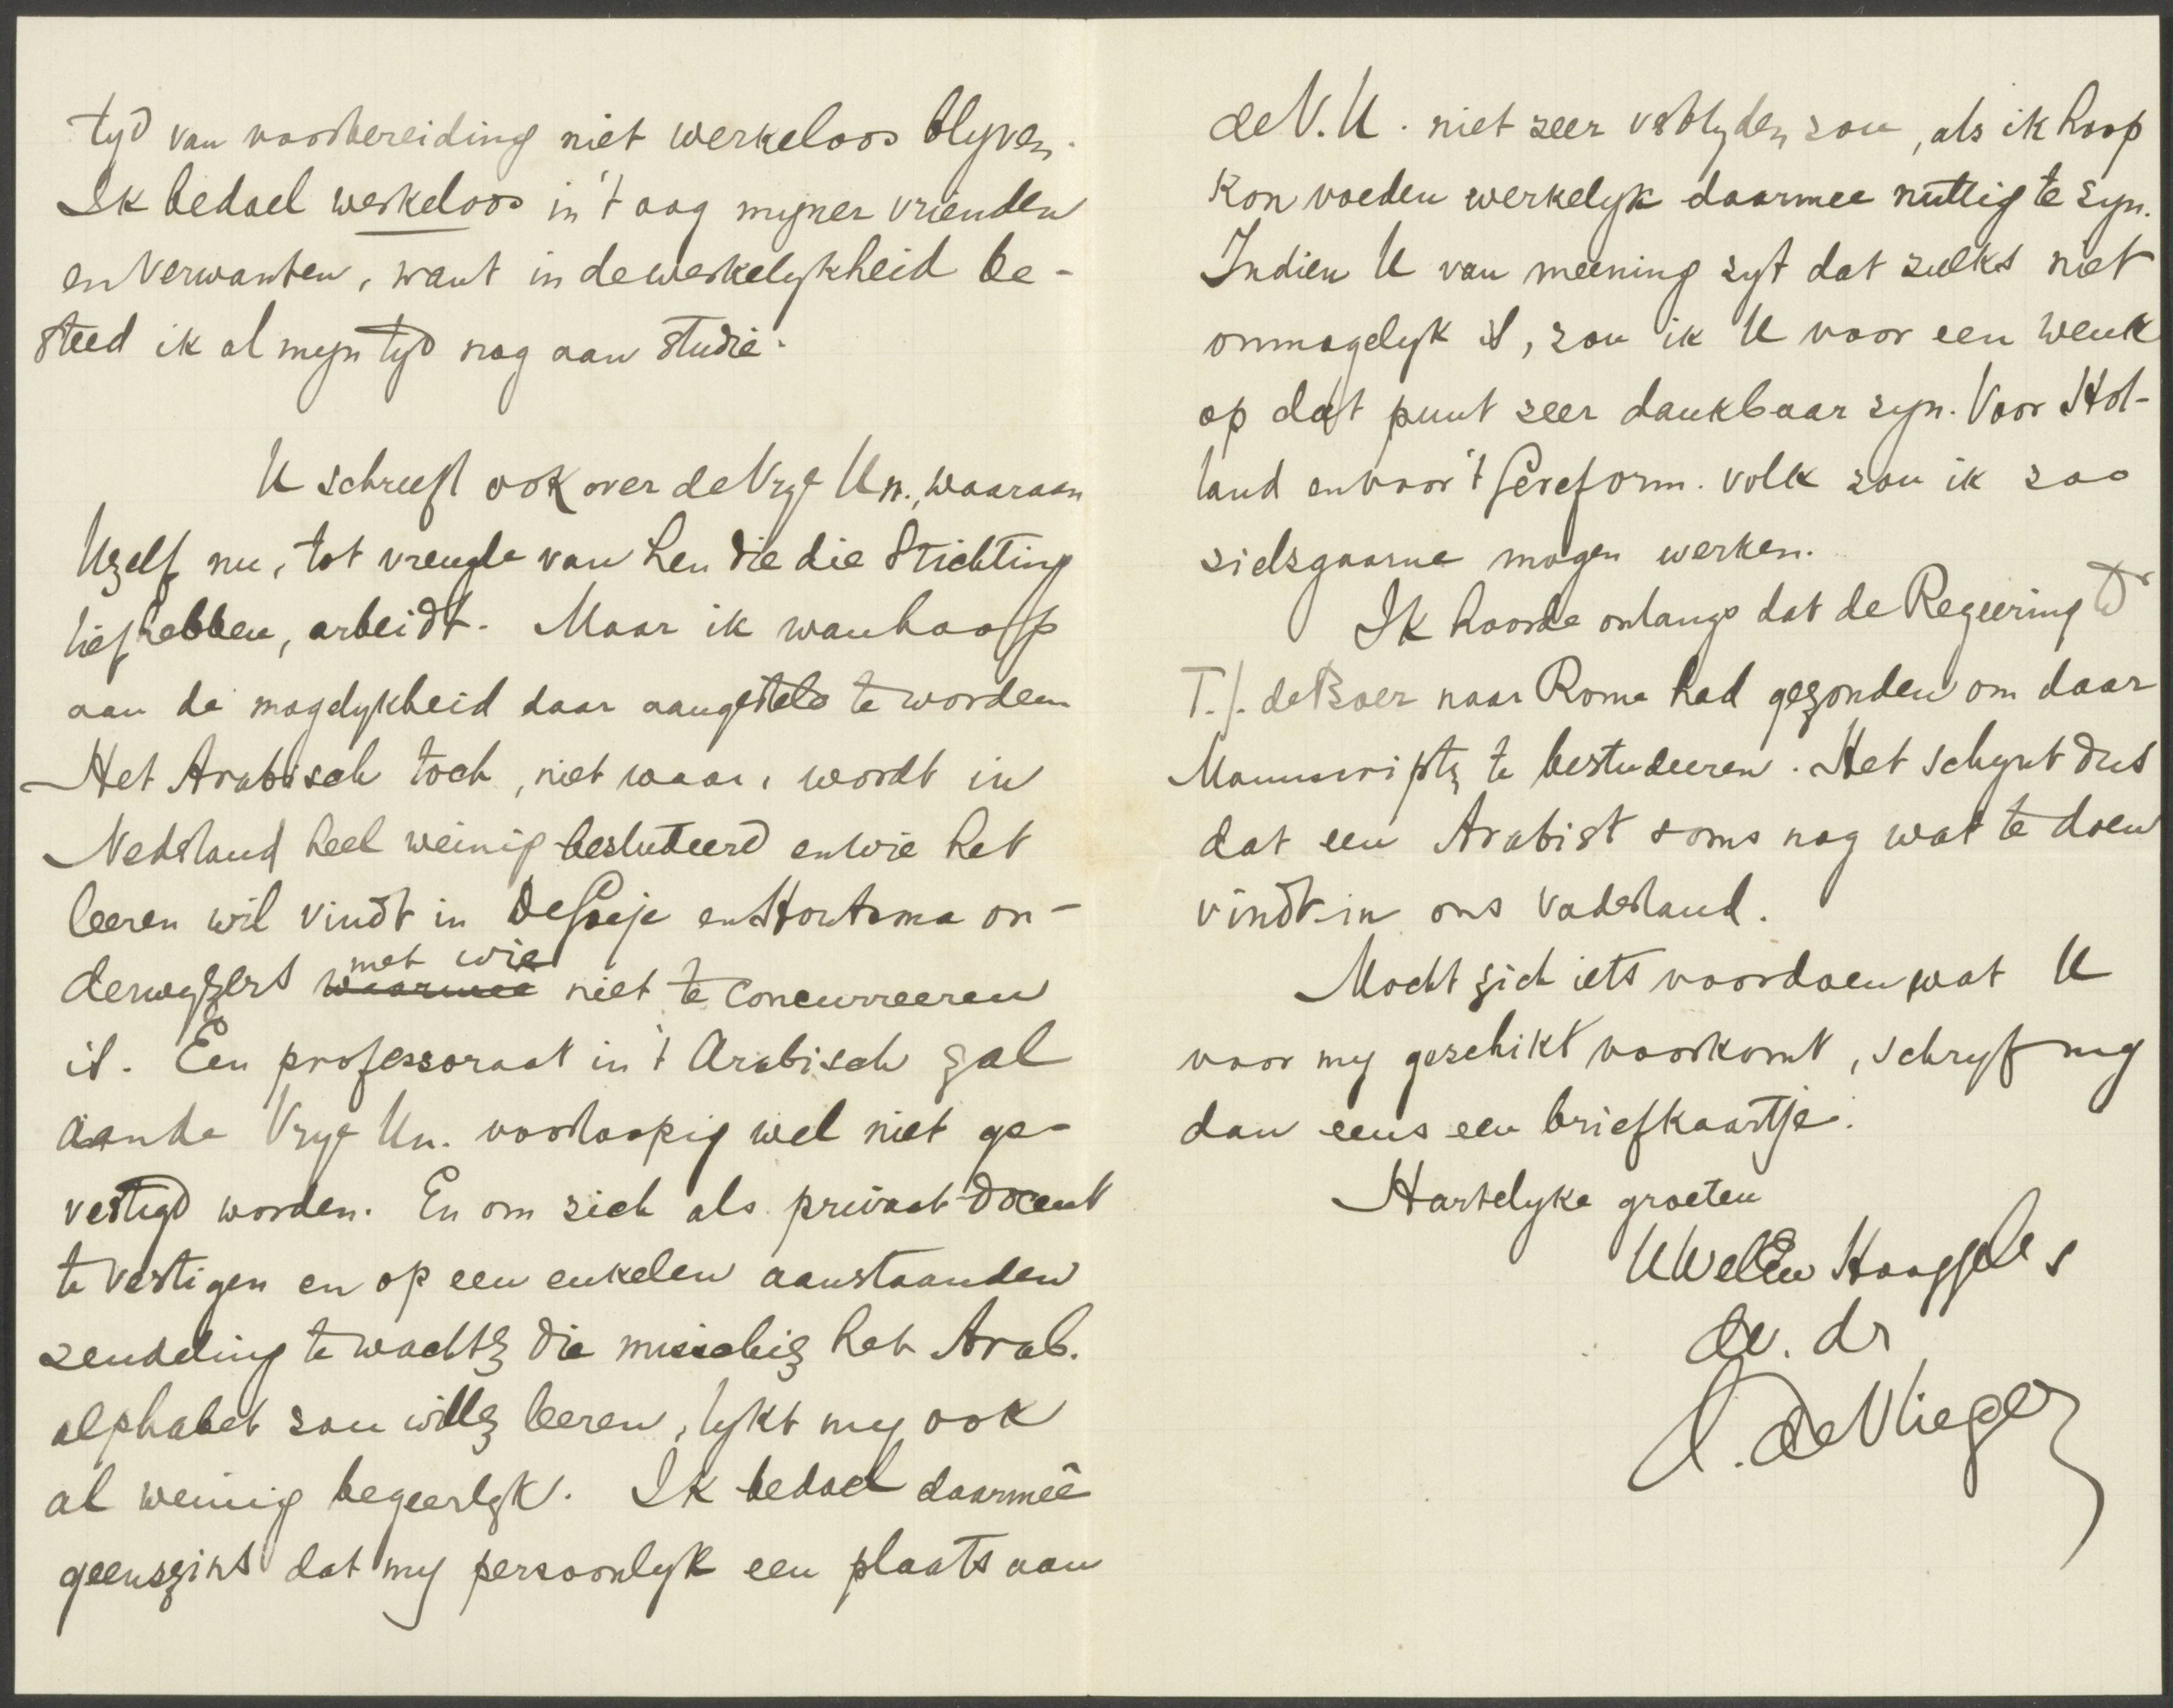 tyd van voorbereiding niet werkeloos blyven.
Ik bedoel werkeloos in 't oog mijner vrienden
en verwanten, want in de werkelykheid be-
steed ik al myn tyd nog aan studie.
U schreeft ook over de Vrye Un., waaraan
Uzelf nu, tot vreugde van hen die die Stichting
liefhebben, arbeidt. Maar ik wanhoop
aan de mogelykheid daar aangesteld te worden.
Het Arabisch toch, niet waar, wordt in
Nederland heel weinig bestudeerd en wie het
leeren wil vindt in De Goeje en Houtsma on-
derwyzers waarmee met wie niet te concurreeren
is. Een professoraat in 't Arabisch zal
aan de Vrye Un. voorloopig wel niet ge-
vestigd worden. En om zich als privaat-docent
te vestigen en op een enkelen aanstaanden
zendeling te wachten die misschien het Arab.
alphabet zou willen leeren, lykt my ook
al weinig begeerlyk. Ik bedoel daarmeê
geenszins dat my persoonlyk een plaats aan
de V. U. niet zeer verblyden zou, als ik hoop
kon voeden werkelyk daarmee nuttig te zyn.
Indien U van meening zyt dat zulks niet
onmogelyk is, zou ik U voor een wenk
op dat punt zeer dankbaar zyn. Voor Hol-
land en voor 't Gereform. volk zou ik zoo
zielsgaarne mogen werken.
Ik hoorde onlangs dat de Regeering Dr
T. J. de Boer naar Rome had gezonden om daar
Manuscripten te bestudeeren. Het schynt dus
dat een Arabist soms nog wat te doen
vindt in ons Vaderland.
Mocht zich iets voordoen wat U
voor my geschikt voorkomt, schryf my
dan eens een briefkaartje.
Hartelyke groeten
UWelEw Hooggel. s
dw. dr
A. de Vlieger